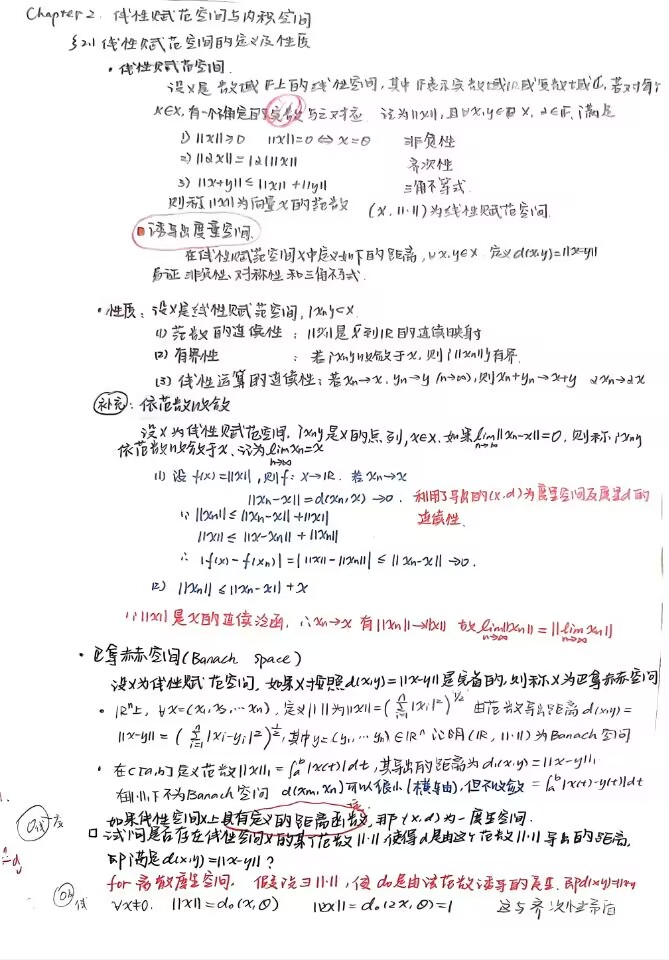 Chapter 2. 线性赋范空间与内积空间
§2.1 线性赋范空间的定义及性质
• 线性赋范空间
设X是数域F上的线性空间,其中F表示实数域R或复数域C,若对每个
x∈X,有一个确定的实数与之对应 记为||x||,且∀x,y∈X, α∈F,满足
1) ||x||≥0 ||x||=0⇔x=θ 非负性
2) ||αx||=|α|||x|| 齐次性
3) ||x+y||≤||x||+||y|| 三角不等式.
则称||x||为向量x的范数 (X,||·||)为线性赋范空间.
诱导出度量空间.
在线性赋范空间X中定义如下的距离,∀x,y∈X 定义d(x,y)=||x-y||
易证非负性、对称性和三角不等式.
• 性质:设X是线性赋范空间,{xn}⊂X.
(1) 范数的连续性:||x||是X到R的连续映射
(2) 有界性 :若{xn}收敛于x,则{||xn||}有界.
(3) 线性运算的连续性:若xn→x, yn→y (n→∞),则xn+yn→x+y αxn→αx
补充:依范数收敛
设X为线性赋范空间,{xn}是X的点列,x∈X.如果lim n→∞ ||xn-x||=0, 则称{xn}
依范数收敛于x.记为lim n→∞ xn=x
(1) 设f(x)=||x||,则f: X→R. 若xn→x
||xn-x||=d(xn,x)→0. 利用了导出的(X,d)为度量空间及度量d的
∵ ||xn||≤||xn-x||+||x|| 连续性.
||x||≤||x-xn||+||xn||
∴ |f(x)-f(xn)|=|||x||-||xn|||≤||xn-x||→0.
(2) ||xn||≤||xn-x||+x
∵||x||是X的连续泛函, ∴xn→x 有||xn||→||x|| 故lim n→∞ ||xn||=||lim n→∞ xn||
• 巴拿赫空间(Banach Space)
设X为线性赋范空间,如果X按照d(x,y)=||x-y||是完备的,则称X为巴拿赫空间
• Rⁿ上, ∀x=(x₁,x₂,…xn),定义||·||为||x||=(∑ⁿᵢ₌₁|xi|²)^1/2 由范数导出距离d(x,y)=
||x-y||=(∑ⁿᵢ₌₁|xi-yi|²)^½,其中y=(y₁,…yn)∈Rⁿ 证明(R,||·||)为Banach空间
• 在C[a,b]定义范数||x||₁=∫ₐᵇ|x(t)|dt,其导出的距离为d₁(x,y)=||x-y||₁
在||·||₁下不为Banach空间 d(xm,xn)可以很小(横轴),但不收敛 =∫ₐᵇ|x(t)-y(t)|dt
如果线性空间X上具有定义的距离函数,那(X,d)为一度量空间.
□ 试问是否存在线性空间X的某个范数||·||使得d是由这个范数||·||导出的距离,
即满足d(x,y)=||x-y||?
for 离散度量空间. 假设∃||·||,使d₀是由该范数诱导的度量.即d(x,y)=||x-y||
∀x≠0. ||x||=d₀(x,θ) ||2x||=d₀(2x,θ)=1 这与齐次性矛盾